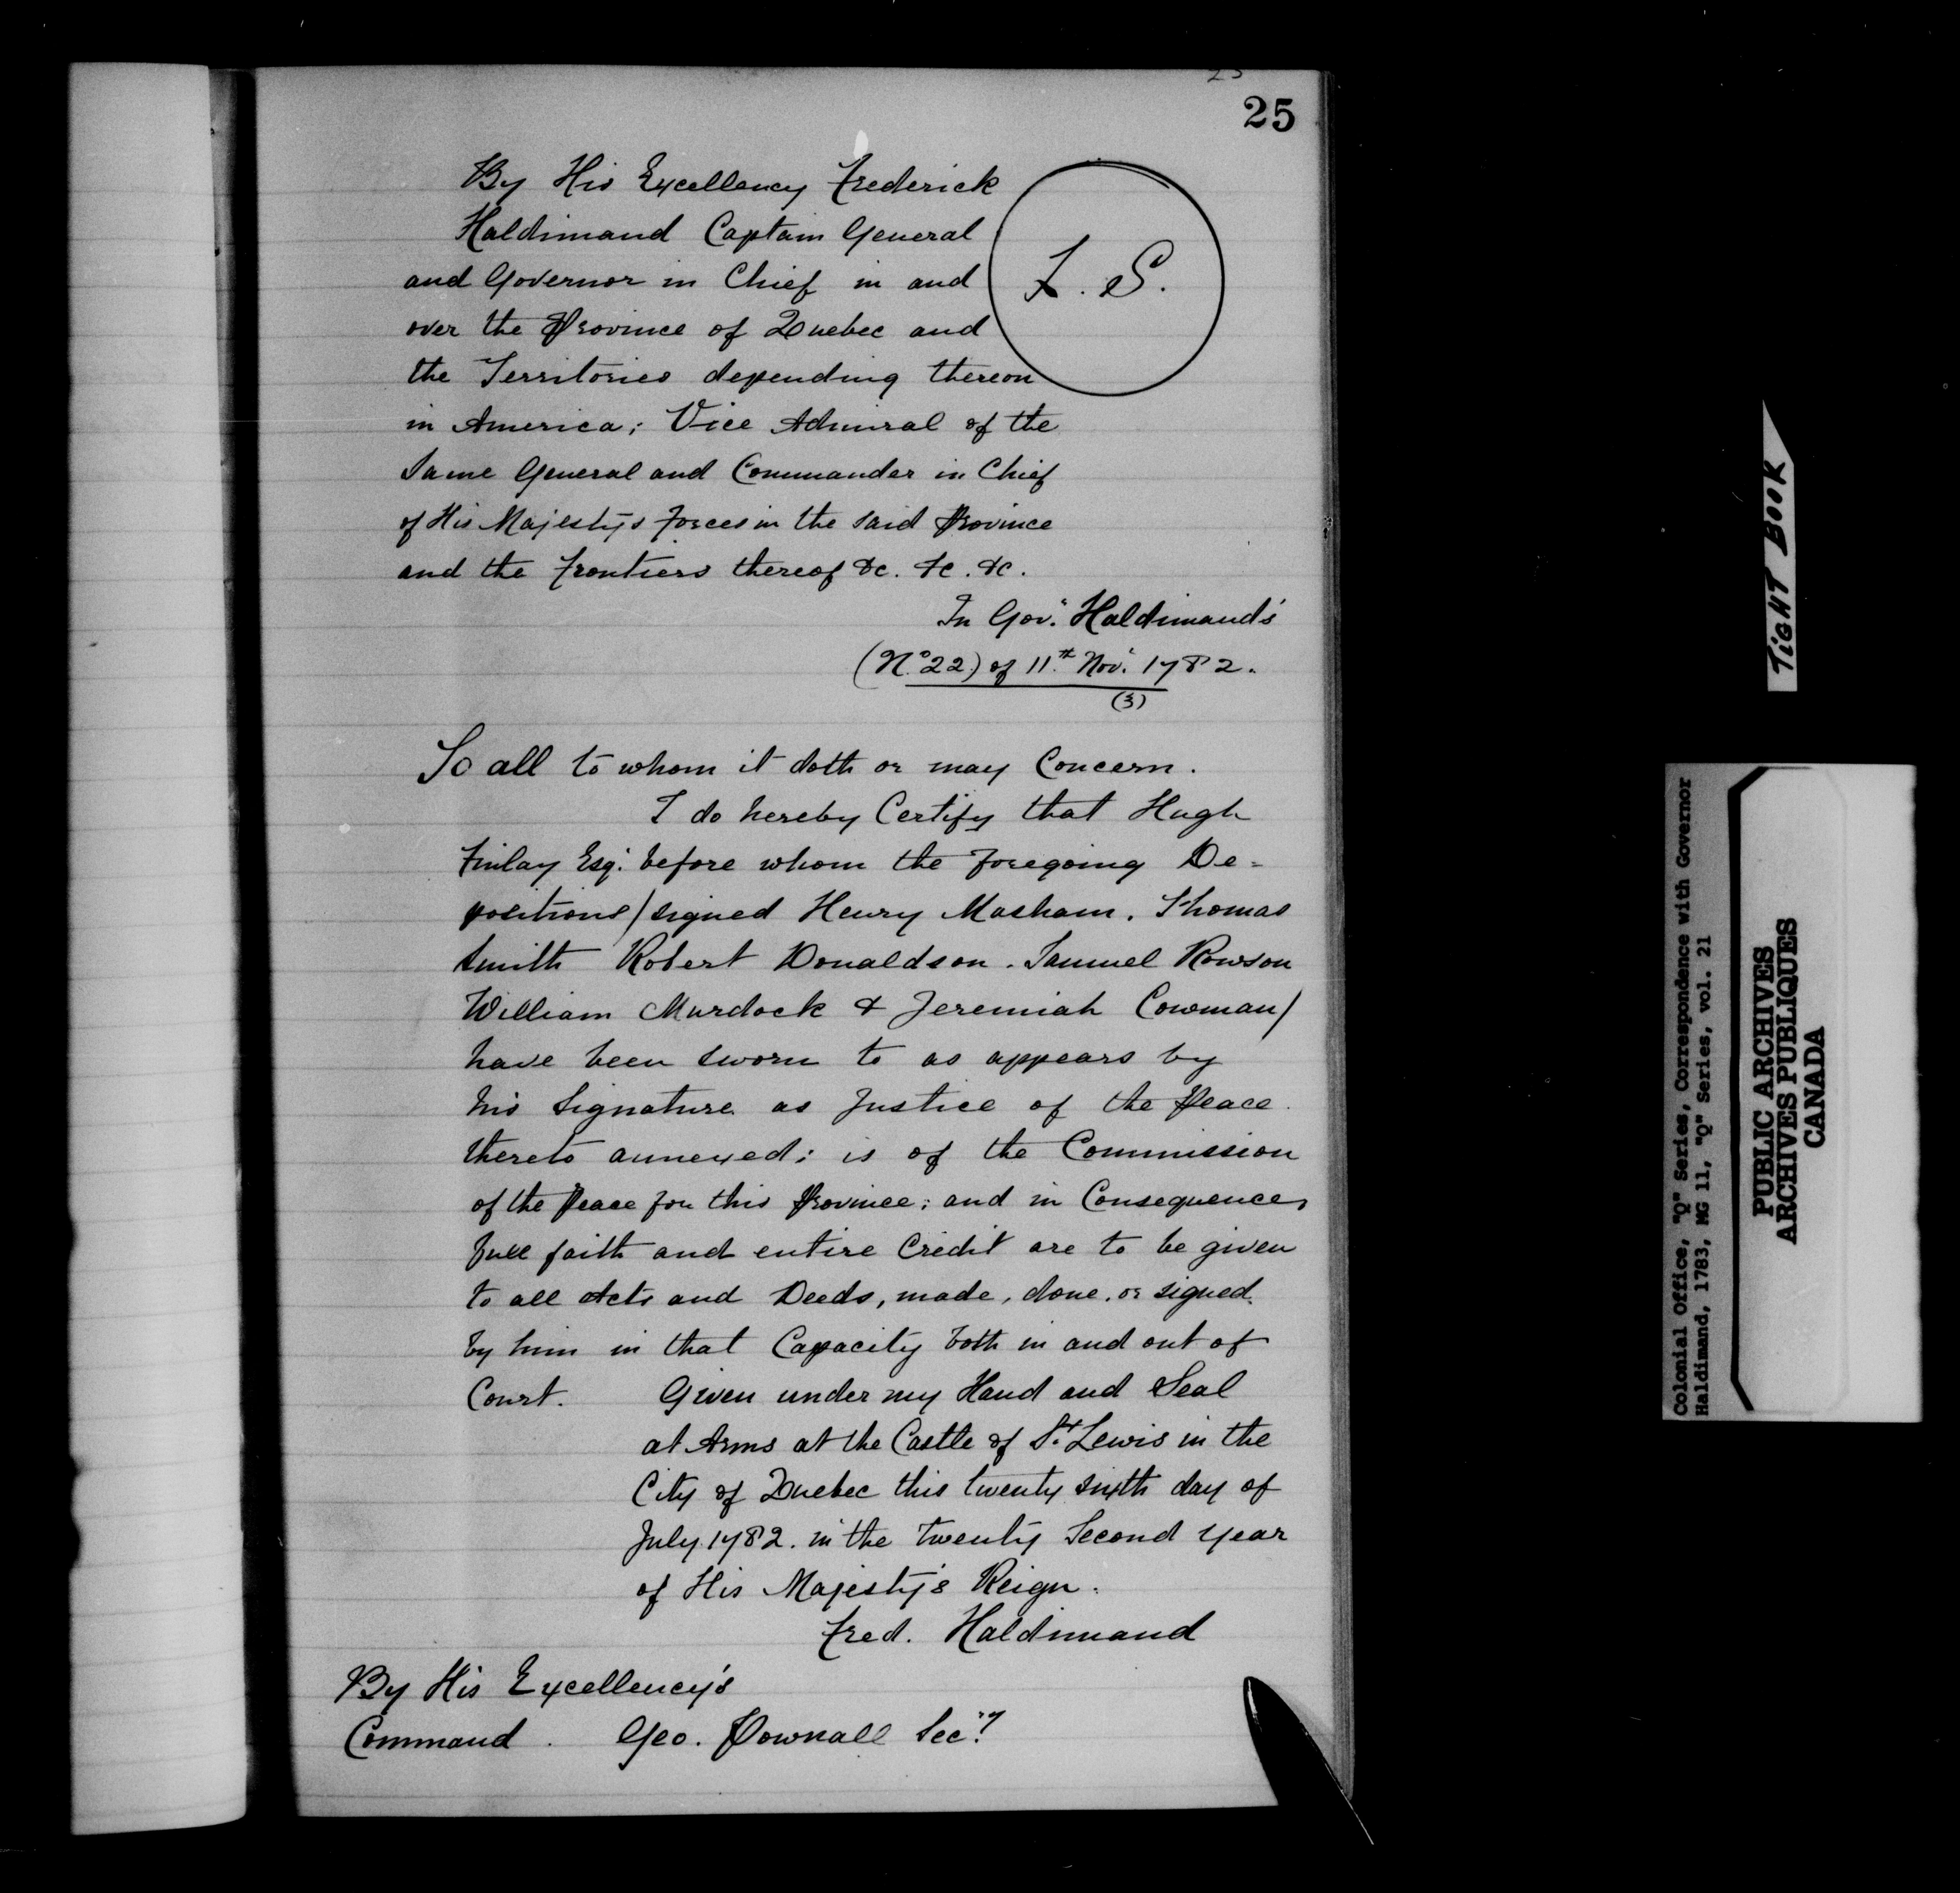 25
25
By His Excellency Frederick
Haldimand Captain General
and Governor in Chief in and
L. S.
over the Province of Quebec and
the Territories depending thereon
in America; Vice Admiral of the
Same General and Commander in Chief
of His Majesty's Forces in the said Province
and the Frontiers thereof &c. &c. &c.
In Gov.r Haldimand's
(No. 22) of 11.th Nov.r 1782.
(3)
To all to whom it doth or may Concern.
I do hereby Certify that Hugh
Finlay Esq.r before whom the foregoing De=
positions/signed Henry Masham. Thomas
Smith Robert Donaldson. Samuel Rowson
William Murdock & Jeremiah Cowman/
have been sworn to as appears by
his Signature as Justice of the Peace
thereto annexed; is of the Commission
of the Peace for this Province; and in Consequence,
full faith and entire Credit are to be given
to all Acts and Deeds, made, done, or signed
by him in that Capacity both in and out of
Court. Given under my Hand and Seal
at Arms at the Castle of St. Lewis in the
City of Quebec this twenty sixth day of
July 1782. in the twenty Second year
of His Majesty's Reign.
Fred. Haldimand
By His Excellency's
Command. Geo. Pownall Sec.ry
TIGHT BOOK
Colonial Office, "Q" Series, Correspondence with Governor
Haldimand, 1783, MG 11, "Q" Series, vol. 21
PUBLIC ARCHIVES
ARCHIVES PUBLIQUES
CANADA